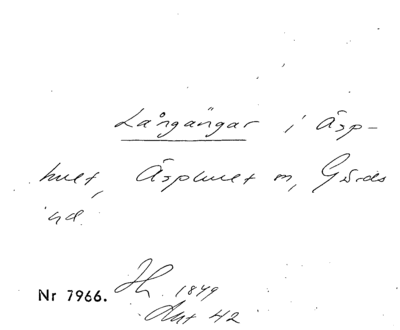 Långängar i Äsp-
hult, Äsphult sn, Gärds
hd.
Nr 7966. Hl. 1849
Akt 42